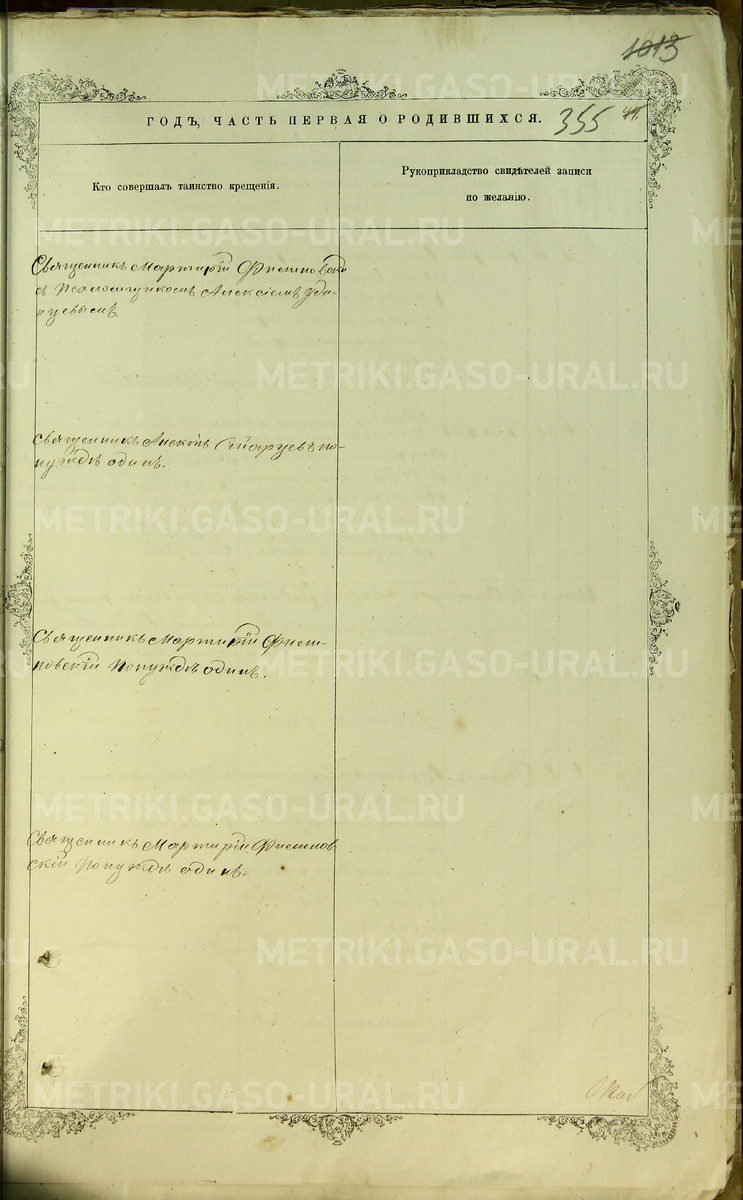 1013
ГОДЪ, ЧАСТЬ ПЕРВАЯ О РОДИВШИХСЯ. 355
Кто совершалъ таинство крещенія.
Рукоприкладство свидѣтелей записи
по желанію.
Священникъ Мартирій
съ Псаломщикомъ Алексіемъ Уда-
нцевымъ
Священникъ Старцевъ по
нуждѣ одинъ.
Священникъ Мартирій
новскій По нуждѣ одинъ.
Священникъ Мартирій
скій По нуждѣ одинъ.
METRIKI.GASO-URAL.RU